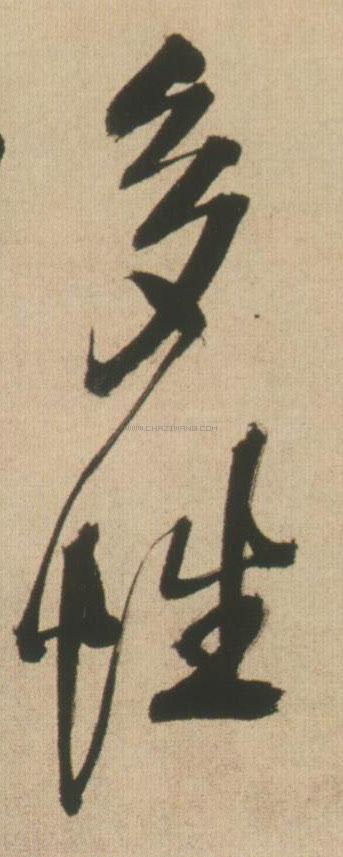 多
性
WWW.CHAZIWANG.COM